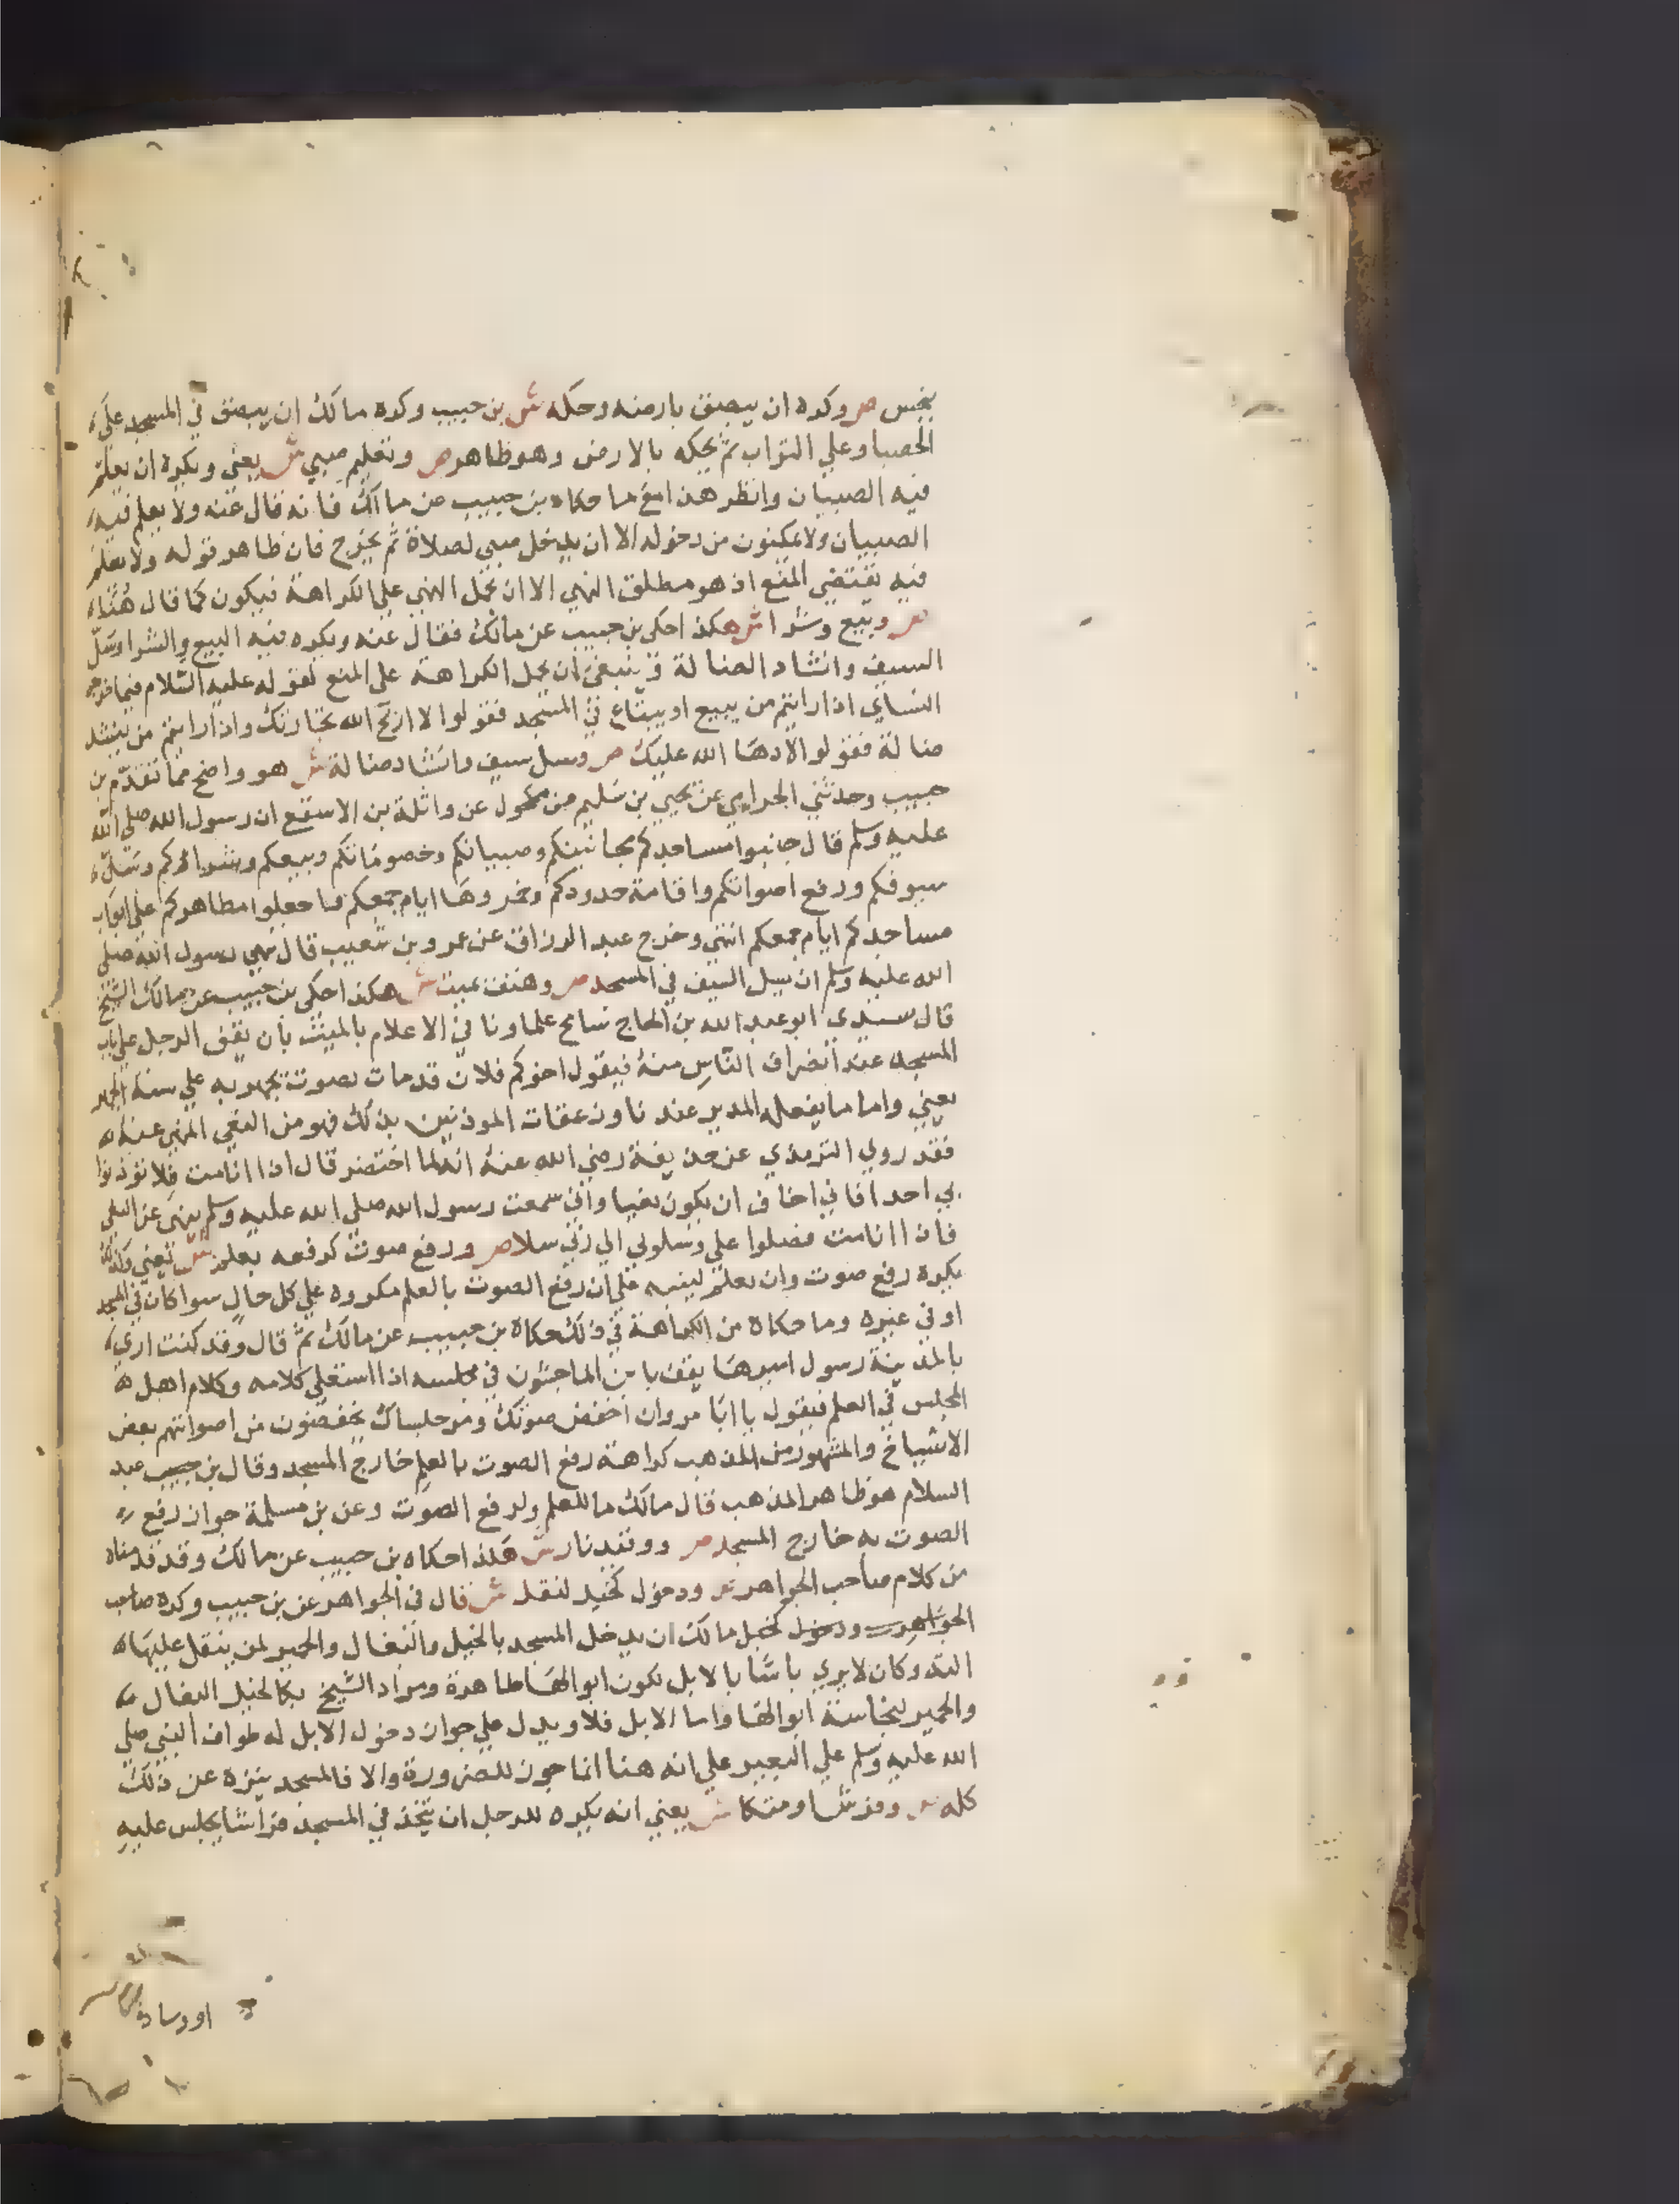 بنجس ص وكره ان يبصق بارضه وحكه ش بن حبيب وكره مالك ان يبصق في المسجد على
الحصبا وعلي التراب ثم يحكه بالارض وهو ظاهر ص وتعليم صبي ش يعني ويكره ان يعلم
فيه الصبيان وانظر هذا مع ما حكاه بن حبيب عن مالك فانه قال عنه ولا يعلم فيه
الصبيان ولا يمكنون من دخوله الا ان يدخل صبي لصلاة ثم يخرج فان ظاهر قوله ولا يعلم
فيه يقتضي المنع اذ هو مطلق النهي الا ان يحمل النهي علي الكراهة فيكون كما قال هنا
ص وبيع وشرا ش هكذا حكى بن حبيب عن مالك فقال عنه ويكره فيه البيع والشرا وسل
السيف وانشاد الضالة وينبغي ان يحمل الكراهة على المنع لقوله عليه السلام فيما خرجه
النساي اذا رايتم من يبيع او يبتاع في المسجد فقولوا لا اربح الله تجارتك واذا رايتم من ينشد
ضالة فقولوا لا ردها الله عليك ص وسل سيف وانشاد ضالة ش هو واضح مما تقدم بن
حبيب وحدثني الحزامي عن يحيي بن سليم عن مكحول عن واثلة بن الاسقع ان رسول الله صلى الله
عليه وسلم قال جنبوا مساجدكم مجانينكم وصبيانكم وخصوماتكم وبيعكم وشراؤكم وسل
سيوفكم ورفع اصواتكم واقامة حدودكم وخمروها ايام جمعكم واجعلوا مطاهركم على ابواب
مساجدكم ايام جمعكم انتهي وخرج عبد الرزاق عن عمرو بن شعيب قال نهي رسول الله صلى
الله عليه وسلم ان يسل السيف في المسجد ص وهتف بميت ش هكذا حكى بن حبيب عن مالك الشيخ
قال سيدي ابو عبد الله بن الحاج سامح علماونا في الاعلام بالميت بان يقف الرجل علي باب
المسجد عند انصراف الناس منه فيقول اخوكم فلان قد مات بصوت يجهر به علي سنة الجهر
يعني واما ما يفعله المدير عندنا وزعقات الموذنين بذلك فهو من النعي المنهي عنه
فقد روي الترمذي عن حذيفة رضي الله عنه انه لما احتضر قال اذا انا مت فلا توذنوا
بي احدا فاني اخاف ان يكون نعيا واني سمعت رسول الله صلي الله عليه وسلم ينهي عن النعي
فاذا انا مت فصلوا علي وسلوني الي ربي سلا ص ورفع صوت كرفعه بعلم ش يعني وكذلك
يكره رفع صوت وان بعلم لينبه علي ان رفع الصوت بالعلم مكروه علي كل حال سوا كان في المسجد
او في غيره وما حكاه من الكراهة في ذلك حكاه بن حبيب عن مالك ثم قال وقد كنت اري
بالمدينة رسول اميرها يقف بابن الماجشون في مجلسه اذا استعلي كلامه وكلام اهل
المجلس في العلم فيقول يا ابا مروان اخفض صوتك ومر جلساك يخفضون من اصواتهم بعض
الاشياخ والمشهور من المذهب كراهة رفع الصوت بالعلم خارج المسجد وقال بن حبيب عبد
السلام هو ظاهر المذهب قال مالك ما للعلم ولرفع الصوت وعن بن مسلمة جواز رفع
الصوت به خارج المسجد ص ووقيد نار ش هكذا حكاه بن حبيب عن مالك وقد قدمناه
من كلام صاحب الجواهر ص ودخول كخيل لنقل ش قال في الجواهر عن بن حبيب وكره صاحب
الجواهر ودخول كخيل مالك ان يدخل المسجد بالخيل والبغال والحمير لمن ينقل عليها
اليه وكان لا يري باسا بالابل لكون ابوالها طاهرة ومراد الشيخ بكالخيل البغال
والحمير لنجاسة ابوالها واما الابل فلا ويدل علي جواز دخول الابل له طواف النبي صلي
الله عليه وسلم علي البعير علي انه هنا انما جوز للضرورة والا فالمسجد ينزه عن ذلك
كله ص وفرش او متكا ش يعني انه يكره للرجل ان يتخذ في المسجد فراشا يجلس عليه
او وسادة